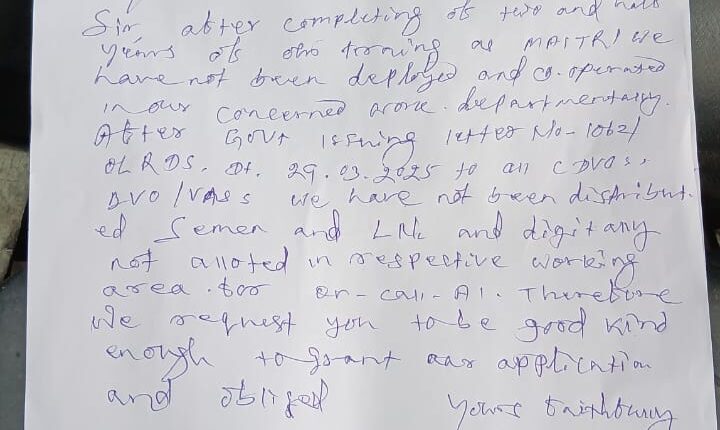 Sir after completing of two and half
years of our training as MAITRI we
have not been deployed and co-operated
in our concerned arone. departmentaly.
After Govt issuing letter No-1062/
OLRDS. Dt. 29.03.2025 to all CDVOs,
DVO/VASs we have not been distribut-
ed Semen and LN2 and digitally
not alloted in respective working
area. for on-call-AI. Therefore
We request you to be good kind
enough to grant our application
and obliged
Yours faithfully